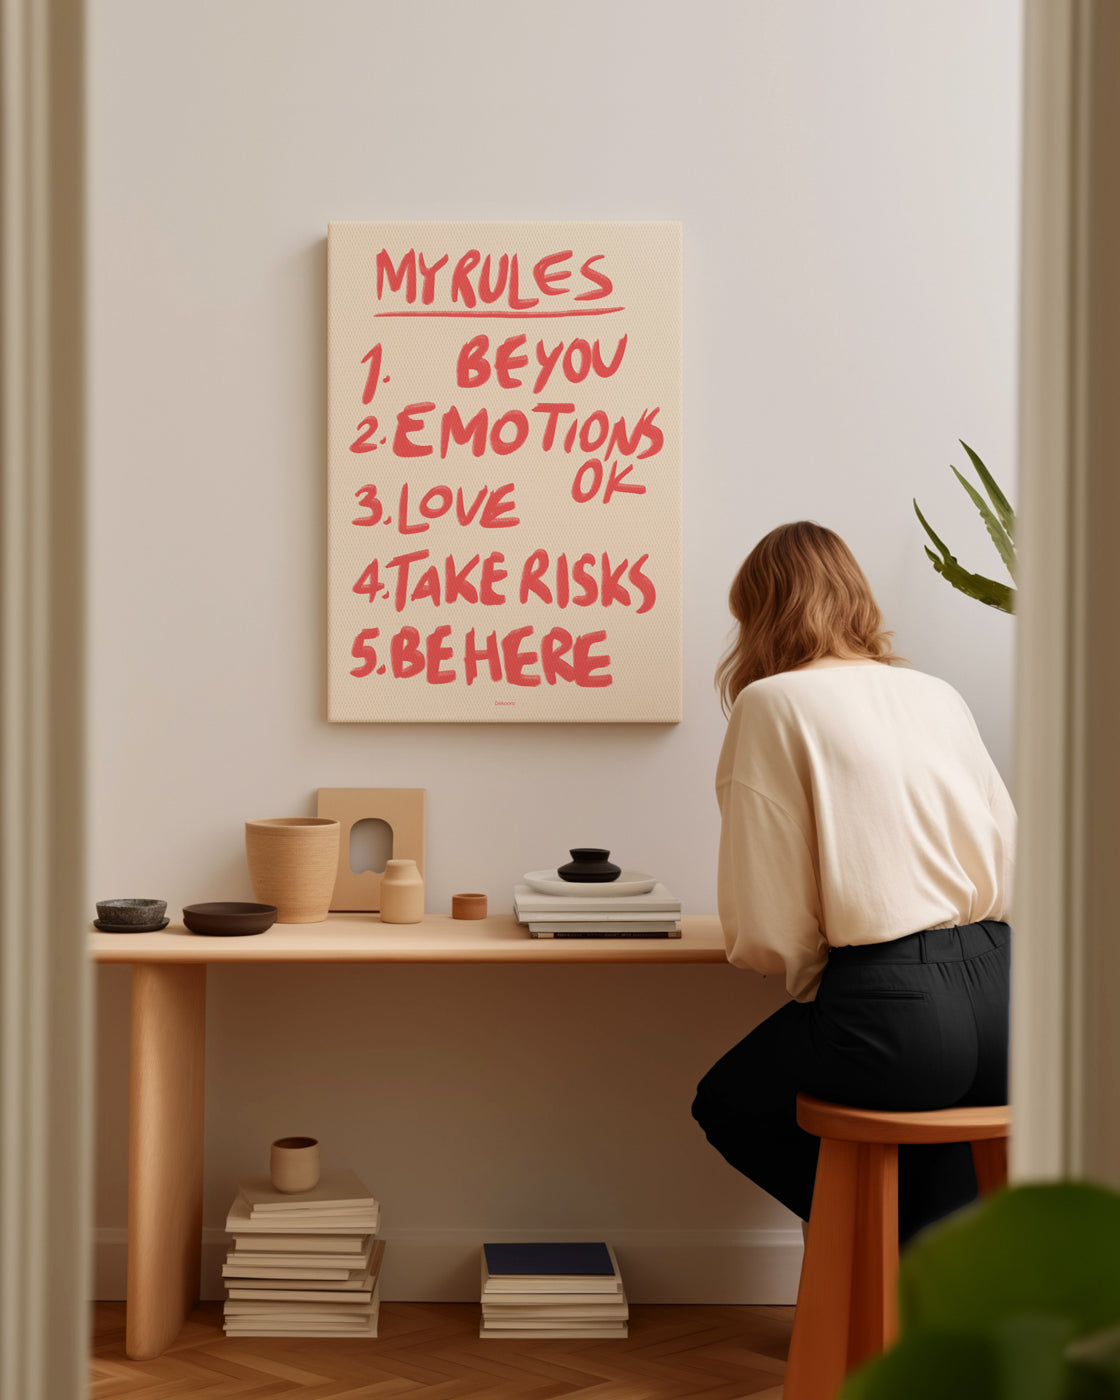 MY RULES
1. BE YOU
2. EMOTIONS
OK
3. LOVE
4. TAKE RISKS
5. BE HERE
Dekoora